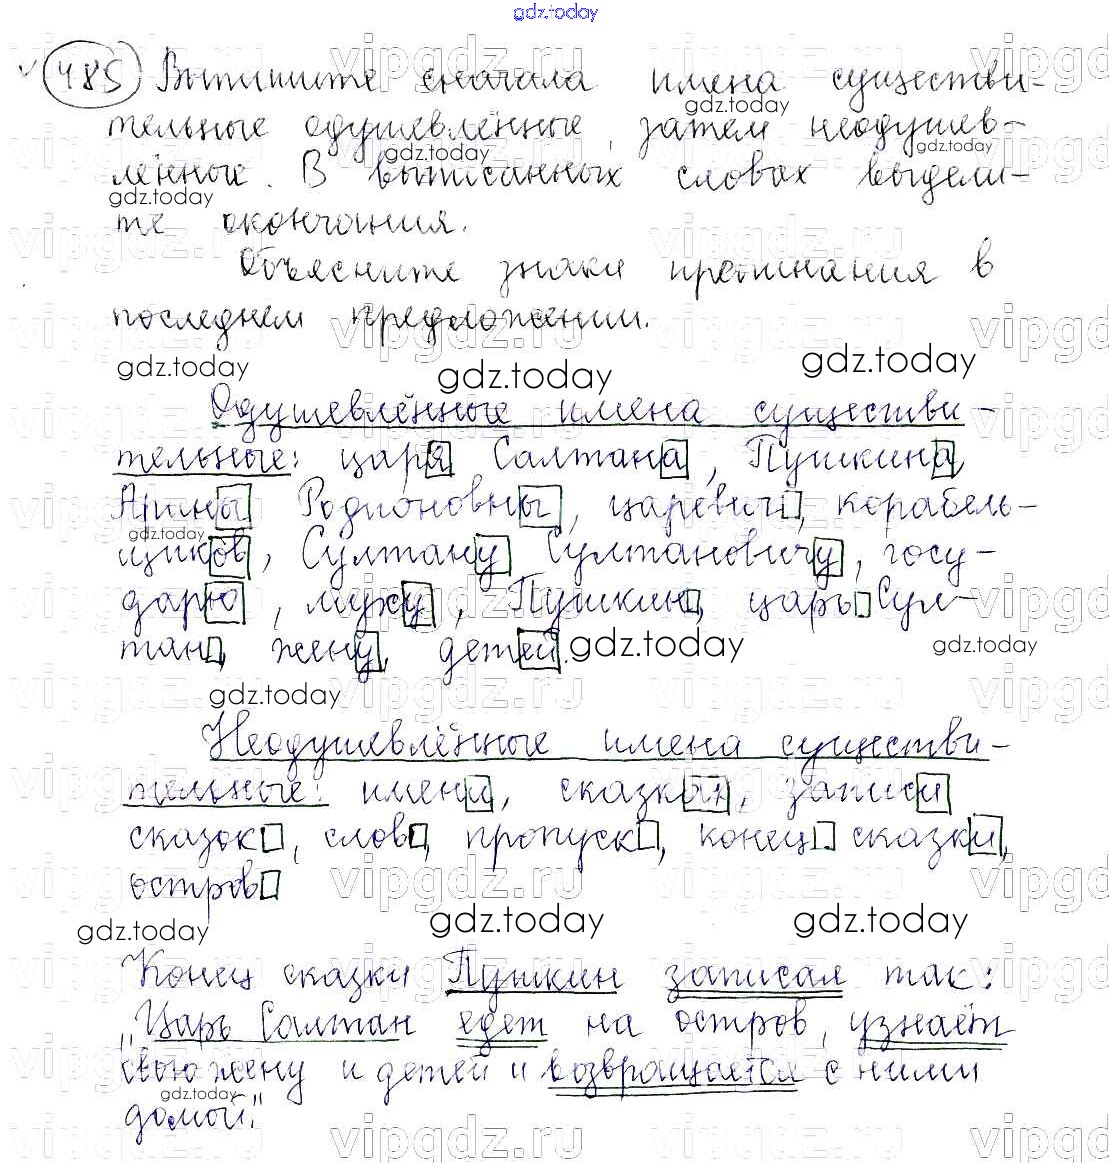 gdz.today
485 Выпишите сначала имена существи-
тельные одушевлённые, затем неодушев-
лённые. В выписанных словах выдели-
те окончания.
Объясните знаки препинания в
последнем предложении.
gdz.today gdz.today gdz.today
Одушевлённые имена существи-
тельные: царя Салтана, Пушкина,
Арины Родионовны, царевич, корабель-
щиков, Султану Султановичу, госу-
дарю, мужу, Пушкин, царь Сул-
тан, жену, детей.
gdz.today
Неодушевлённые имена существи-
тельные: имени, сказках, записи
сказок, слов, пропуск, конец сказки,
остров
gdz.today gdz.today gdz.today
Конец сказки Пушкин записал так:
"Царь Салтан едет на остров, узнаёт
свою жену и детей и возвращается с ними
домой."